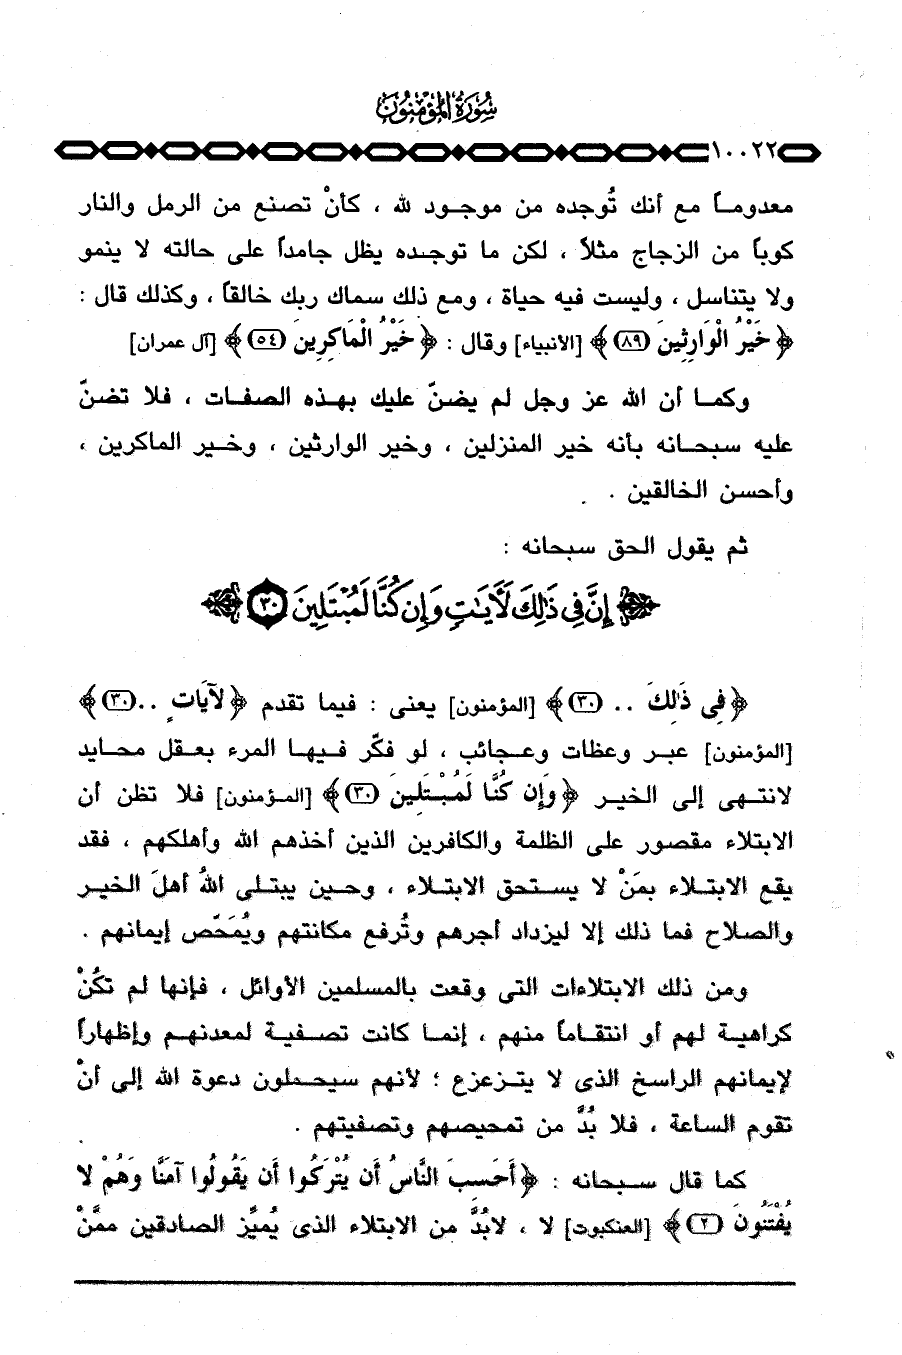 سُورَةُ المُؤْمِنُونَ
١٠٠٢٢
معدوماً مع أنك تُوجده من موجود لله ، كأنْ تصنع من الرمل والنار
كوباً من الزجاج مثلاً ، لكن ما توجده يظل جامداً على حالته لا ينمو
ولا يتناسل ، وليست فيه حياة ، ومع ذلك سماك ربك خالقاً ، وكذلك قال :
﴿ خَيْرُ الْوَارِثِينَ (٨٩) ﴾ [الأنبياء] وقال : ﴿ خَيْرُ الْمَاكِرِينَ (٥٤) ﴾ [آل عمران]
وكما أن الله عز وجل لم يضنّ عليك بهذه الصفات ، فلا تضنّ
عليه سبحانه بأنه خير المنزلين ، وخير الوارثين ، وخير الماكرين ،
وأحسن الخالقين .
ثم يقول الحق سبحانه :
﴿ إِنَّ فِي ذَٰلِكَ لَآيَٰتٍ وَإِن كُنَّا لَمُبْتَلِينَ ٣٠ ﴾
﴿ فِي ذَٰلِكَ .. (٣٠) ﴾ [المؤمنون] يعنى : فيما تقدم ﴿ لآيَاتٍ .. (٣٠) ﴾
[المؤمنون] عبر وعظات وعجائب ، لو فكّر فيها المرء بعقل محايد
لانتهى إلى الخير ﴿ وَإِن كُنَّا لَمُبْتَلِينَ (٣٠) ﴾ [المؤمنون] فلا تظن أن
الابتلاء مقصور على الظلمة والكافرين الذين أخذهم الله وأهلكهم ، فقد
يقع الابتلاء بمَنْ لا يستحق الابتلاء ، وحين يبتلى اللهُ أهلَ الخير
والصلاح فما ذلك إلا ليزداد أجرهم وتُرفع مكانتهم ويُمَحَّص إيمانهم .
ومن ذلك الابتلاءات التى وقعت بالمسلمين الأوائل ، فإنها لم تكُنْ
كراهية لهم أو انتقاماً منهم ، إنما كانت تصفية لمعدنهم وإظهاراً
لإيمانهم الراسخ الذى لا يتزعزع ؛ لأنهم سيحملون دعوة الله إلى أنْ
تقوم الساعة ، فلا بُدَّ من تمحيصهم وتصفيتهم .
كما قال سبحانه : ﴿ أَحَسِبَ النَّاسُ أَن يُتْرَكُوا أَن يَقُولُوا آمَنَّا وَهُمْ لا
يُفْتَنُونَ (٢) ﴾ [العنكبوت] لا ، لابُدَّ من الابتلاء الذى يُميِّز الصادقين ممَّنْ